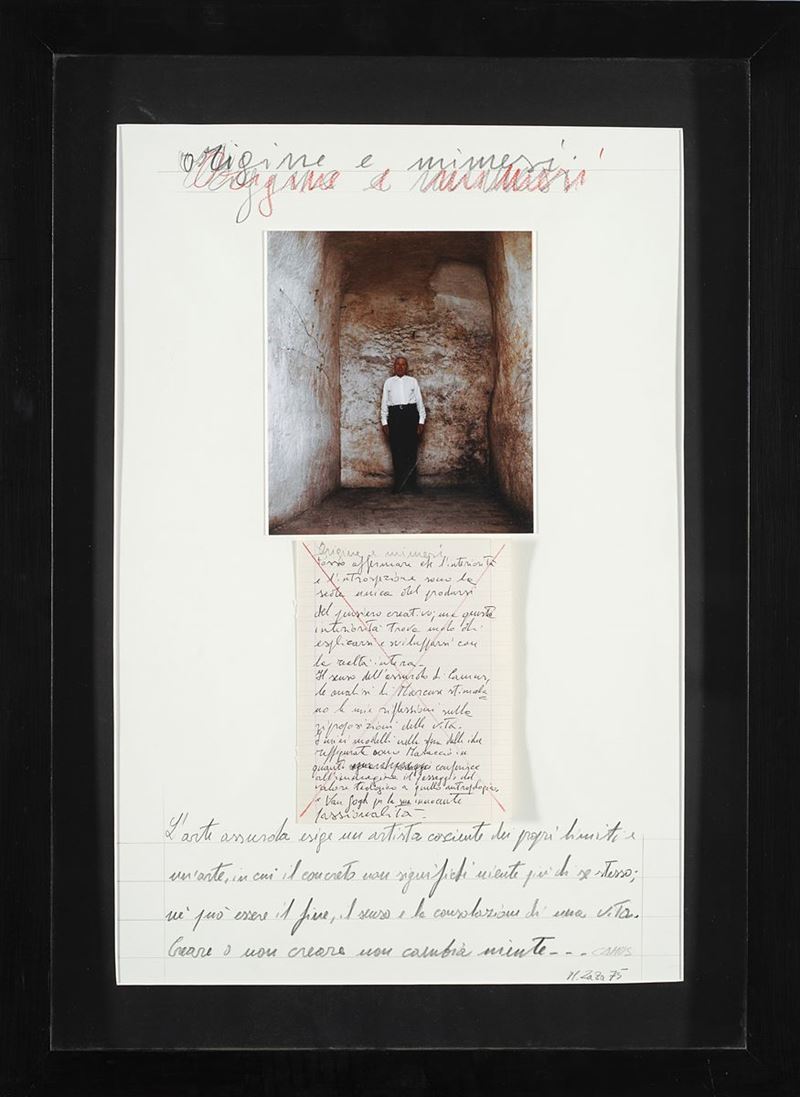 origine e mimesi
Origine e mimesi
Origine e mimesi
Posso affermare che l'interiorità
e l'introspezione sono la
sede unica del prodursi
del pensiero creativo; ma questa
interiorità trova modo di
esplicarsi e svilupparsi con
la realtà intera.
Il senso dell'assurdo di Camus,
le analisi di Marcuse stimola
no le mie riflessioni sulla
riproposizioni della vita.
I miei modelli nella
raffigurate sono Masaccio in
quanto conferisce
all'immagine il passaggio del
valore teologico a quello antropologico,
e Van Gogh per la sua innocente
passionalità.
L'arte assurda esige un artista cosciente dei propri limiti e
un'arte, in cui il concreto non significhi niente più di se stesso;
nè può essere il fine, il senso e la consolazione di una vita.
Creare o non creare non cambia niente --- CAMUS
M. Zaza 75